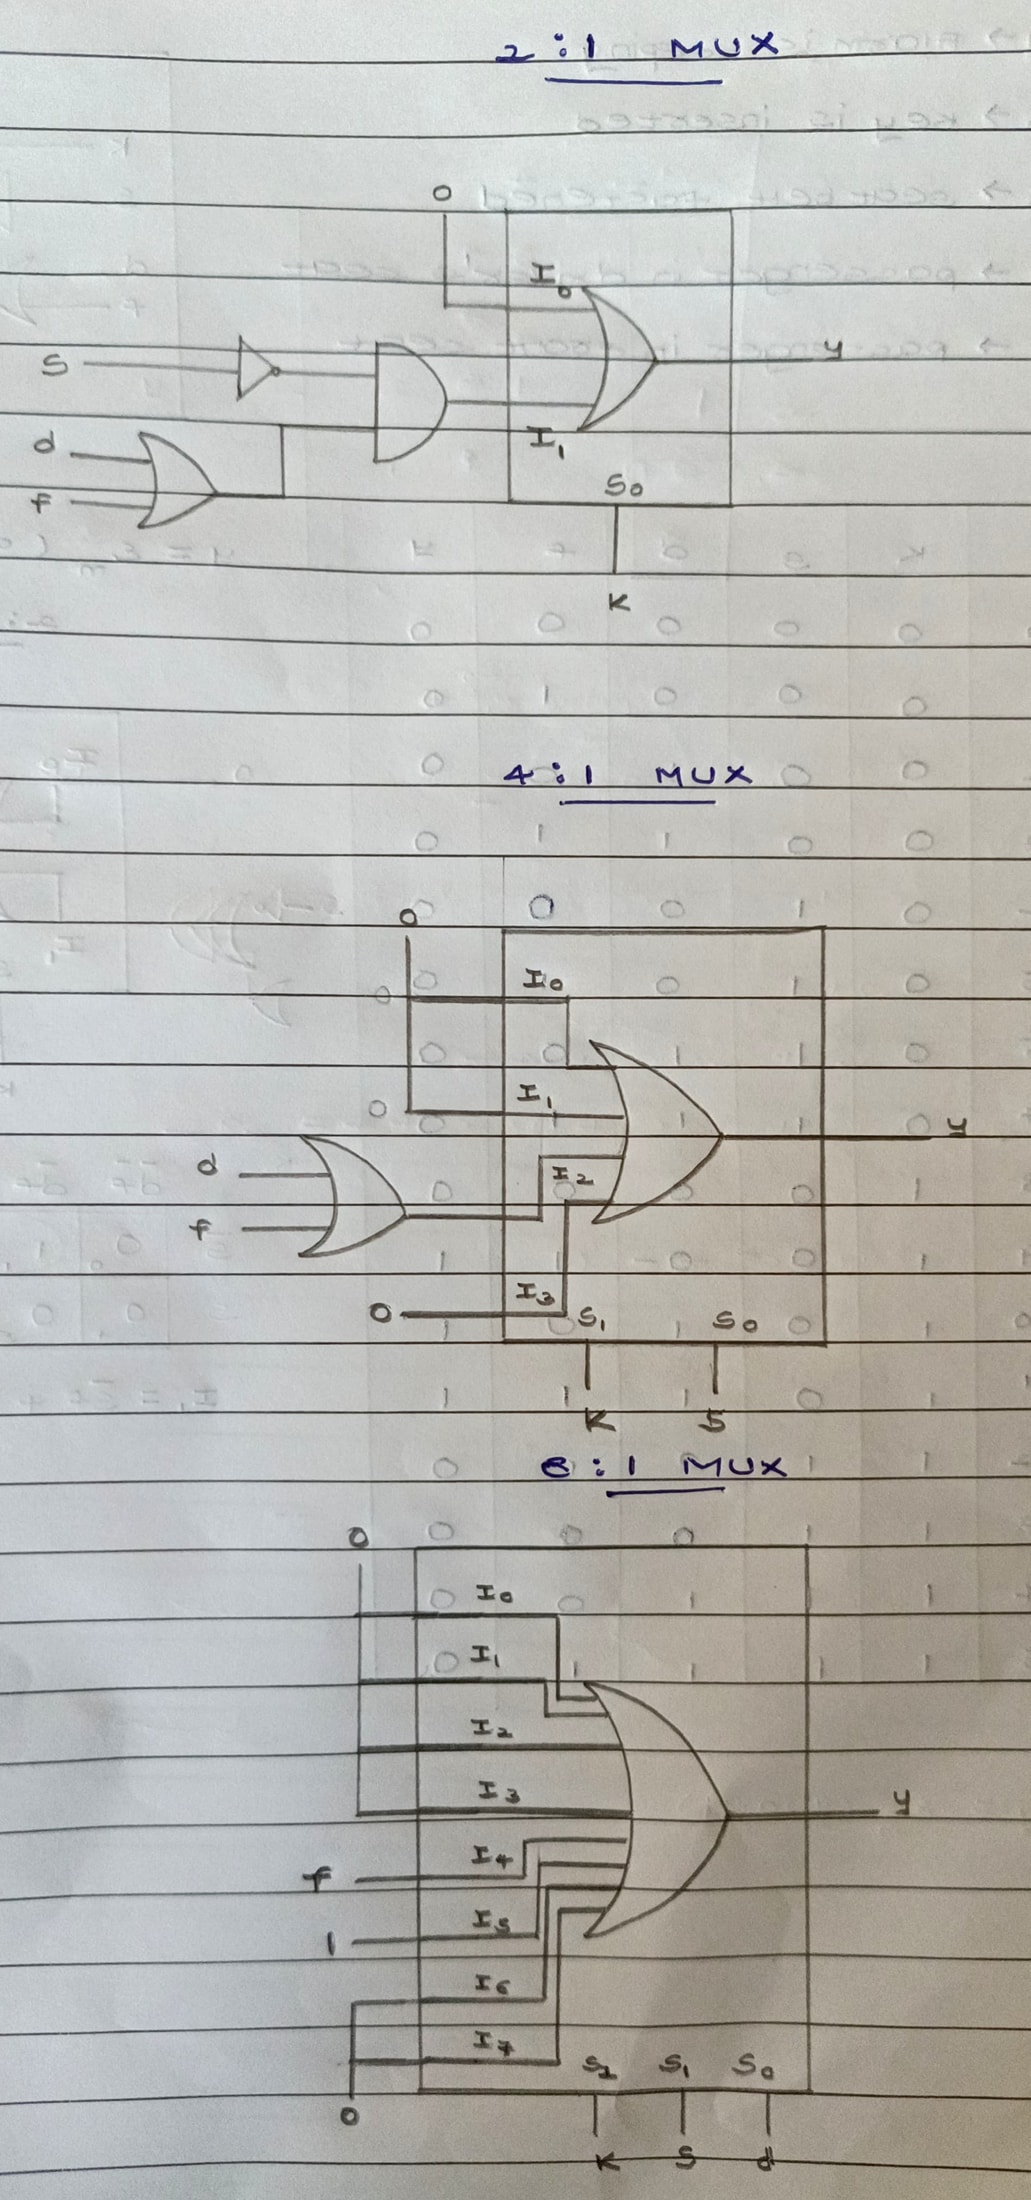 2:1 MUX
0
I0
S
y
d
I1
f
S0
K
4:1 MUX
0
I0
0
I1
0
y
d
I2
f
I3
0
S1 S0
K S
8:1 MUX
0
I0
I1
I2
I3
y
I4
f
I5
1
I6
I7
S2 S1 S0
0
K S d